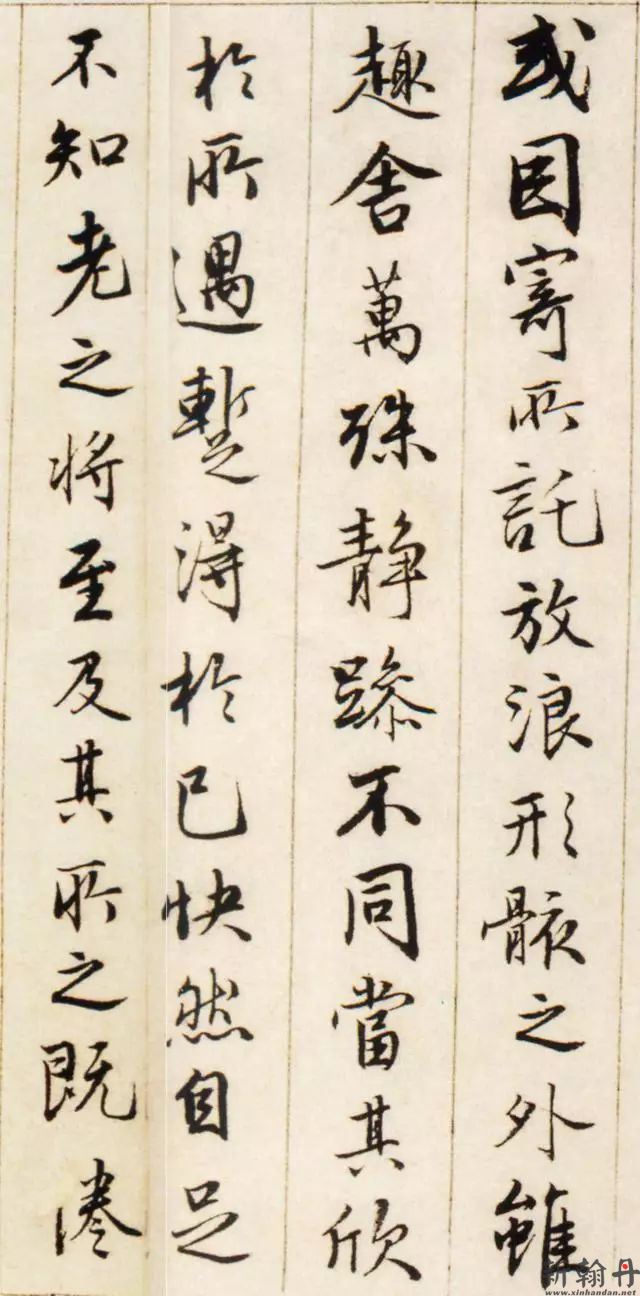 或因寄所託放浪形骸之外雖
趣舍萬殊静躁不同當其欣
於所遇蹔得於己快然自足
不知老之將至及其所之既惓
新翰丹
www.xinhandan.net